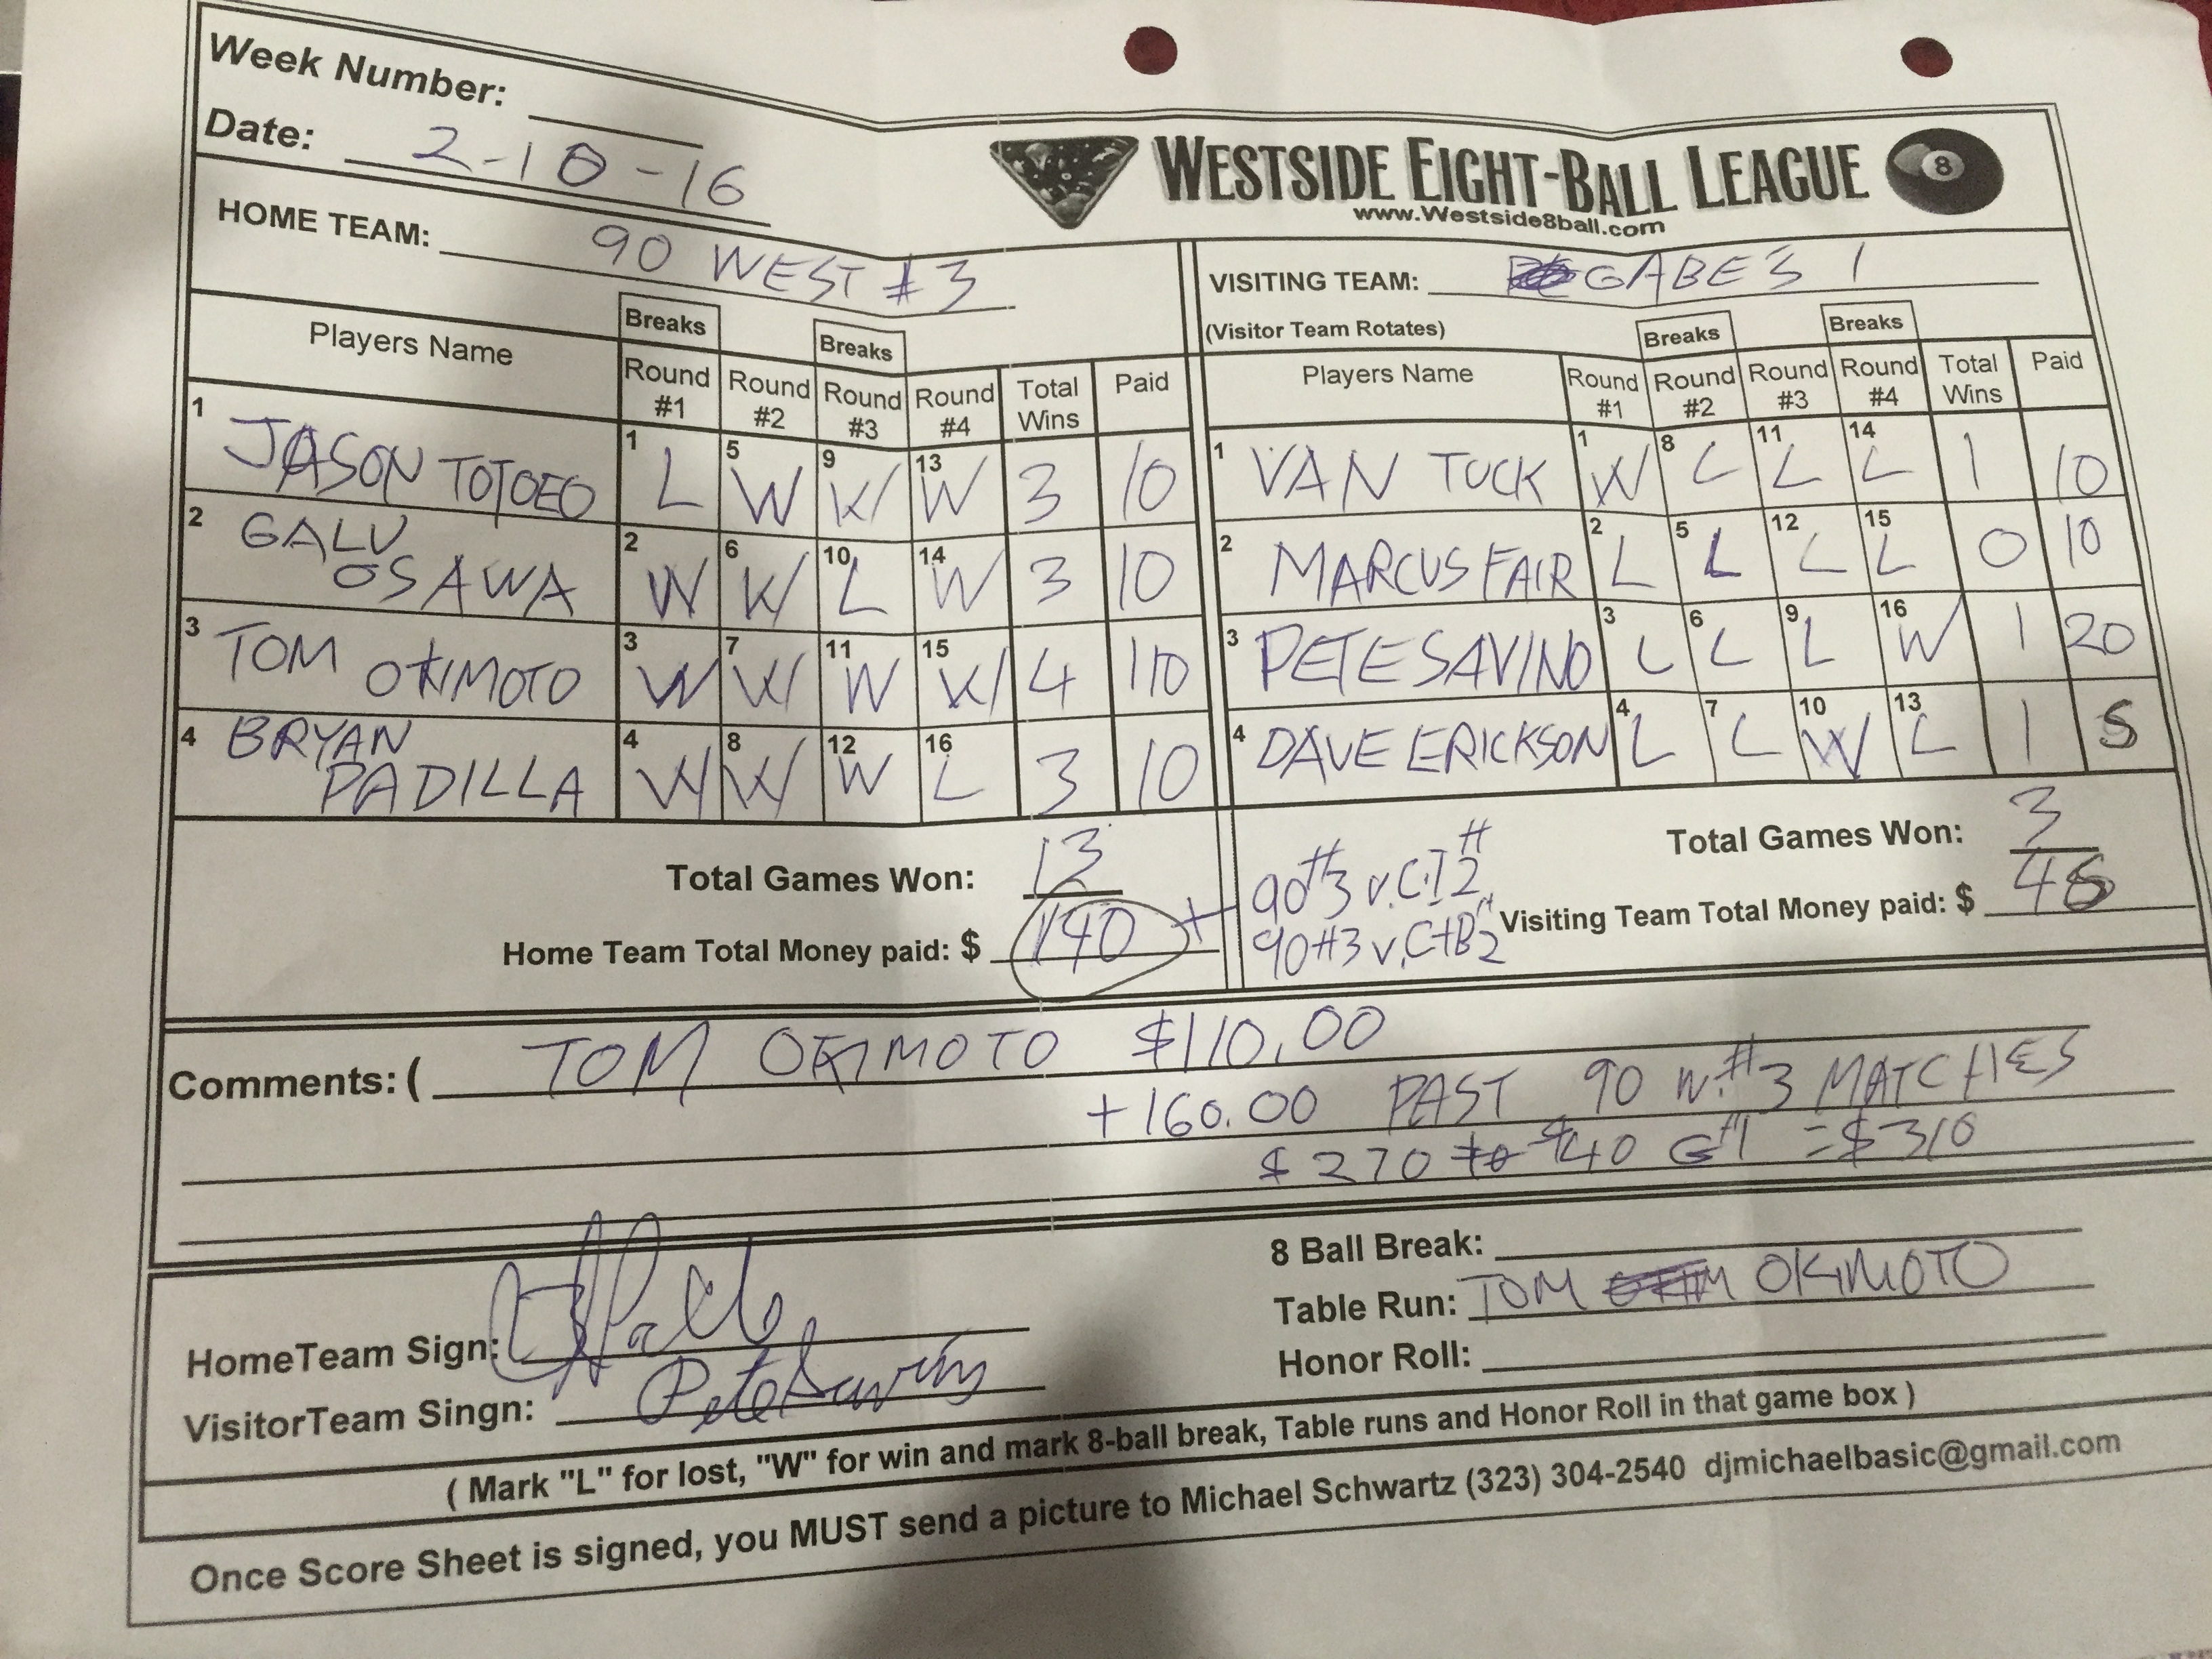 Week Number:
Date: 2-10-16
WESTSIDE EIGHT-BALL LEAGUE 8
www.Westside8ball.com
HOME TEAM: 90 WEST #3
VISITING TEAM: GABES 1
(Visitor Team Rotates)
Breaks Breaks
Players Name Round #1 Round #2 Round #3 Round #4 Total Wins Paid
1 JASON TOTOEO 1 L 5 W 9 W 13 W 3 10
2 GALU OSAWA 2 W 6 W 10 L 14 W 3 10
3 TOM OKIMOTO 3 W 7 W 11 W 15 W 4 110
4 BRYAN PADILLA 4 W 8 W 12 W 16 L 3 10
Total Games Won: 13
Home Team Total Money paid: $ 140 +
Breaks Breaks
Players Name Round #1 Round #2 Round #3 Round #4 Total Wins Paid
1 VAN TUCK 1 W 8 L 11 L 14 L 1 10
2 MARCUS FAIR 2 L 5 L 12 L 15 L 0 10
3 PETE SAVINO 3 L 6 L 9 L 16 W 1 20
4 DAVE ERICKSON 4 L 7 L 10 W 13 L 1 5
90#3 v. C.I #2
90#3 v.
Total Games Won: 3
Visiting Team Total Money paid: $ 45
Comments: ( TOM OKIMOTO $110.00
+160.00 PAST 90 W. #3 MATCHES
$270 $40 G#1 = $310
HomeTeam Sign:
VisitorTeam Singn: Pete Savino
8 Ball Break:
Table Run: TOM OKIMOTO
Honor Roll:
( Mark "L" for lost, "W" for win and mark 8-ball break, Table runs and Honor Roll in that game box )
Once Score Sheet is signed, you MUST send a picture to Michael Schwartz (323) 304-2540 djmichaelbasic@gmail.com